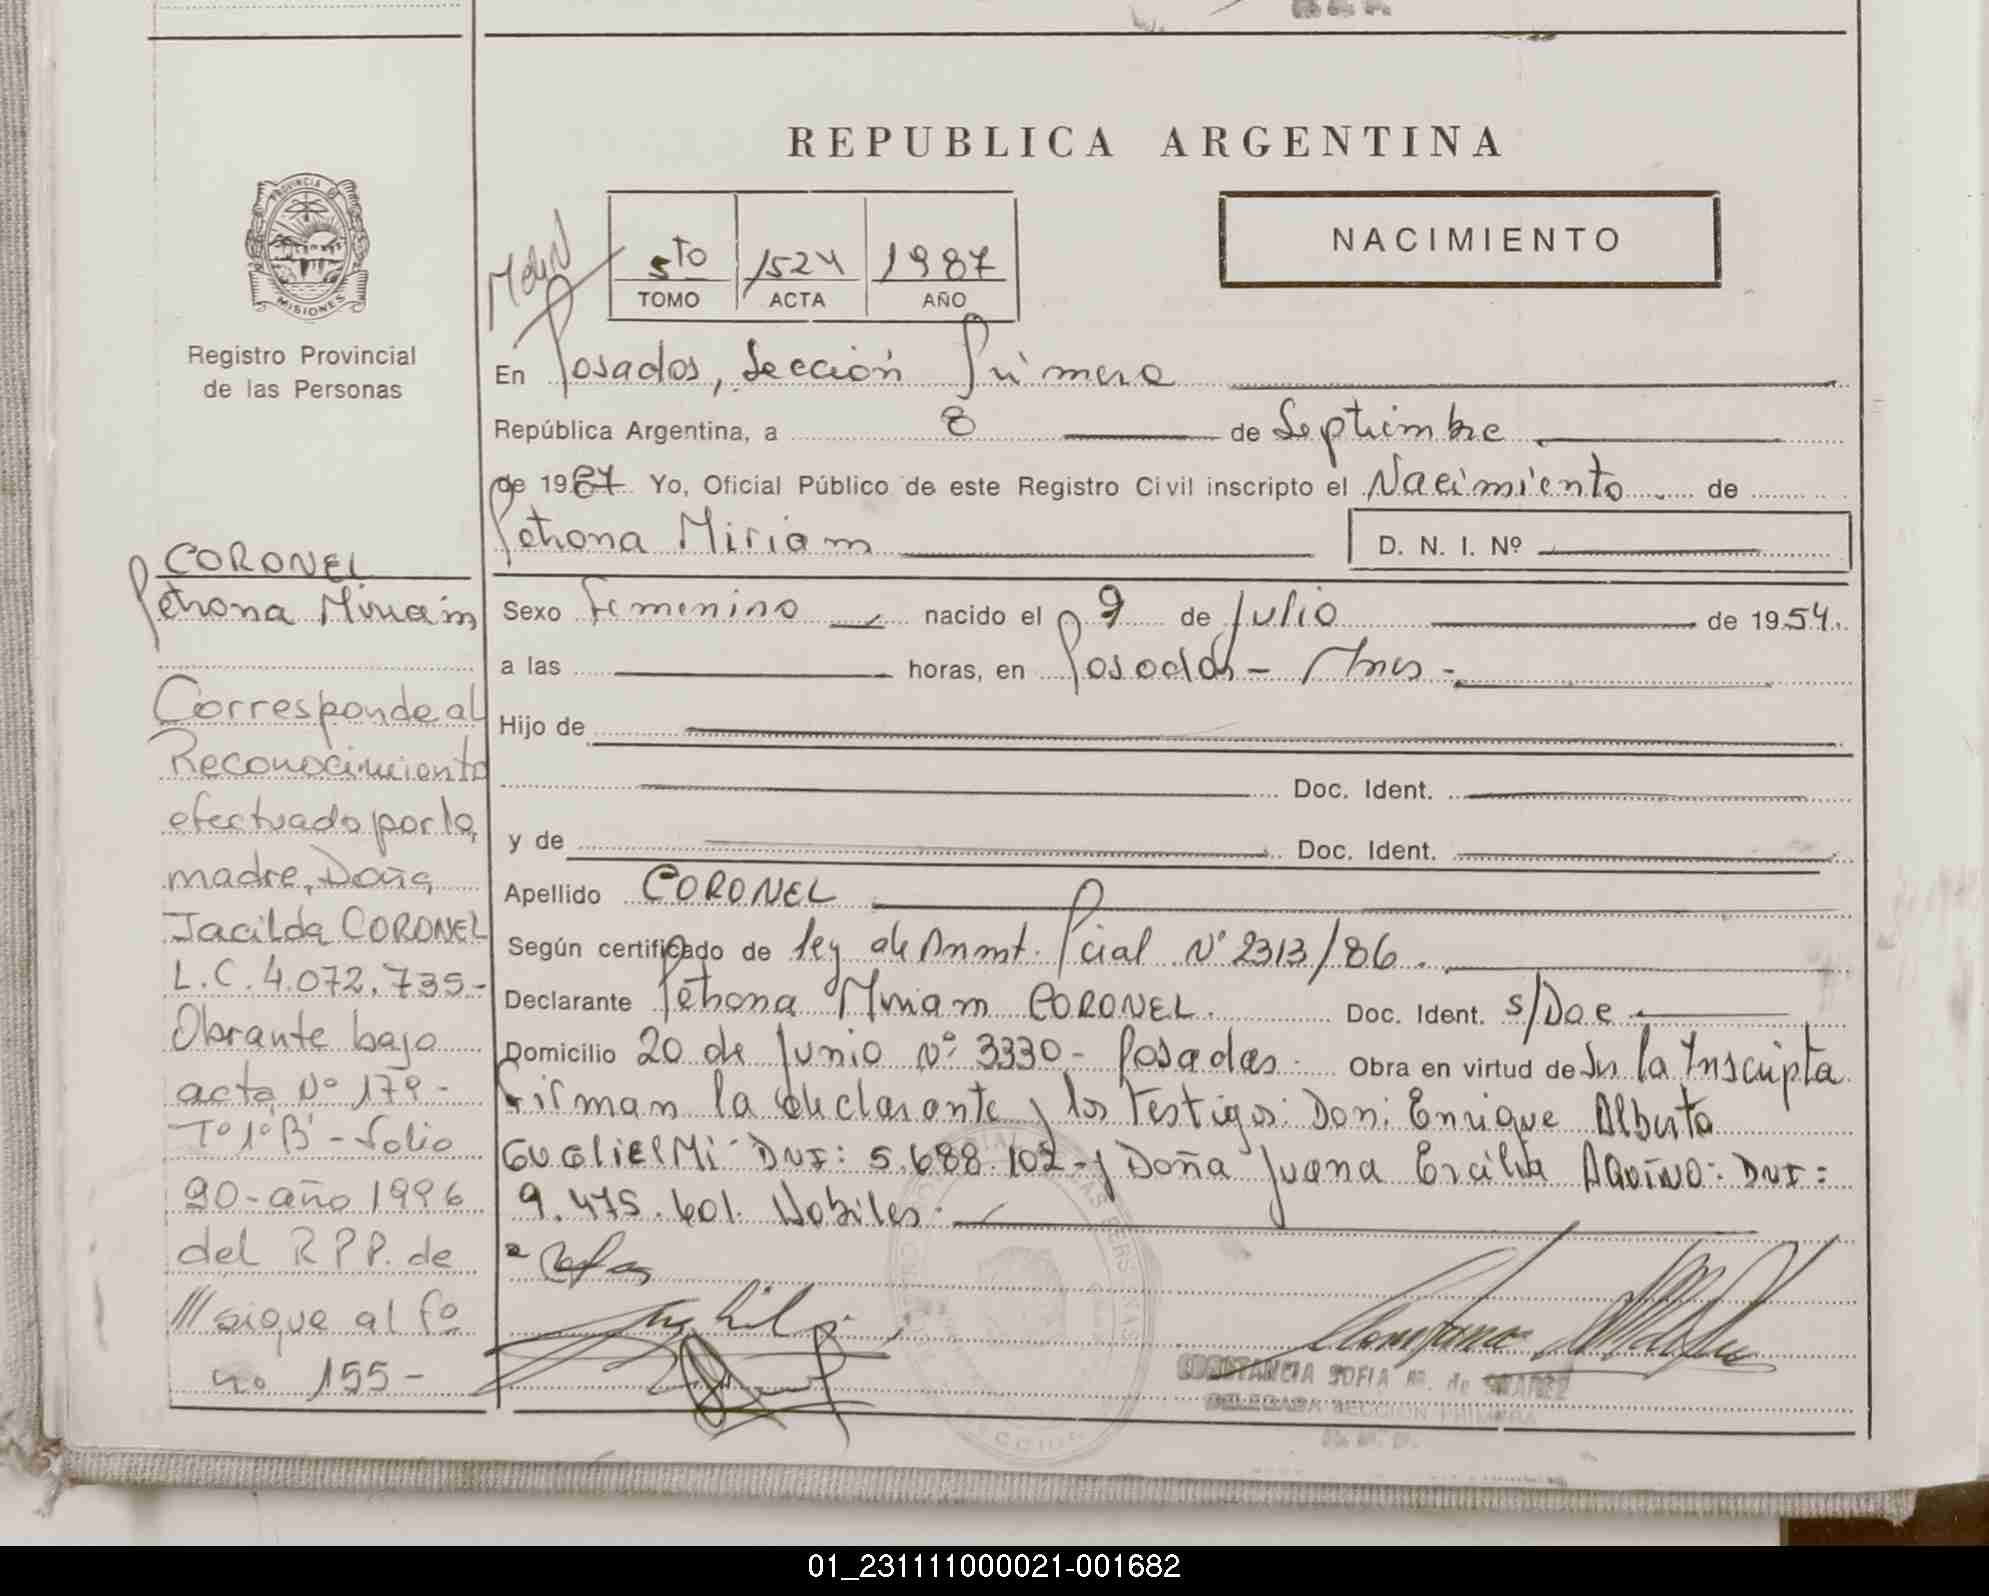 REPUBLICA ARGENTINA
PROVINCIA DE
MISIONES
Registro Provincial
de las Personas
5to 1524 1987
TOMO ACTA AÑO
NACIMIENTO
En Posadas, Sección Primera
República Argentina, a 8 de Septiembre
de 1987 Yo, Oficial Público de este Registro Civil inscripto el Nacimiento de
Petrona Miriam D. N. I. Nº
Sexo Femenino nacido el 9 de Julio de 1954.
a las horas, en Posadas - Mnes -
Hijo de
Doc. Ident.
y de Doc. Ident.
Apellido CORONEL
Según certificado de ley de Amnt. Pcial Nº 2313/86.
Declarante Petrona Miriam CORONEL. Doc. Ident. S/Doc
Domicilio 20 de Junio Nº 3330 - Posadas. Obra en virtud de Ser la Inscripta
Firman la declarante y los Testigos: Don: Enrique Alberto
GUGLIELMI DNI: 5.688.102 - y Doña Juana Ercilia AQUINO: DNI:
9.475.601. Hábiles.
CORONEL
Petrona Miriam
Corresponde al
Reconocimiento
efectuado por la,
madre, Doña,
Jacilda CORONEL
L.C. 4.072.735.-
Obrante bajo
acta Nº 179 -
Tº 1º B' - Folio
90 - año 1996
del R.P.P. de
/// sigue al fº
nº 155 -
CONSTANCIA SOFIA M. de SUAREZ
DELEGADA SECCION PRIMERA
01_231111000021-001682